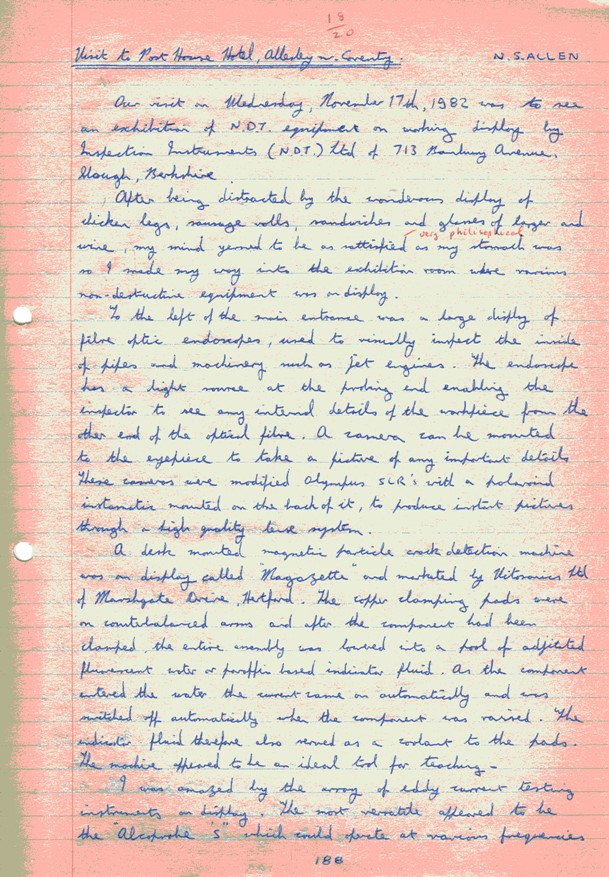 18
20
Visit to Post House Hotel, Allesley nr. Coventry. N.S.ALLEN
Our visit on Wednesday, November 17th, 1982 was to see
an exhibition of N.D.T. equipment on working display by
Inspection Instruments (N.D.T.) Ltd of 713 Banbury Avenue,
Slough, Berkshire.
After being distracted by the wonderous display of
chicken legs, sausage rolls, sandwiches and glasses of larger and
very philisophical
wine, my mind yerned to be as sattisfied as my stomach was
so I made my way into the exhibition room where various
non-destructive equipment was on display.
To the left of the main entrance was a large display of
fibre optic endoscopes, used to visually inspect the inside
of pipes and machinery such as jet engines. The endoscope
has a light source at the probing end enabling the
inspector to see any internal details of the workpiece from the
other end of the optical fibre. A camera can be mounted
to the eyepiece to take a picture of any important details
These cameras were modified Olympus SLR's with a polaroid
instamatic mounted on the back of it, to produce instant pictures
through a high quality lense system.
A desk mounted magnetic particle crack detection machine
was on display called "Magazette" and marketed by Vitosonics Ltd
of Marshgate Drive, Hertford. The copper clamping pads were
on counterbalanced arms and after the component had been
clamped the entire assembly was lowered into a pool of adjitated
fluorescent water or paraffin based indicator fluid. As the component
entered the water the current came on automatically and was
switched off automatically when the component was raised. The
indicator fluid therefore also served as a coolant to the pads.
The machine appeared to be an ideal tool for teaching -
I was amazed by the array of eddy current testing
instruments on display. The most versatile appeared to be
the "Alcoprobe 'S" which could operate at various frequencies
188